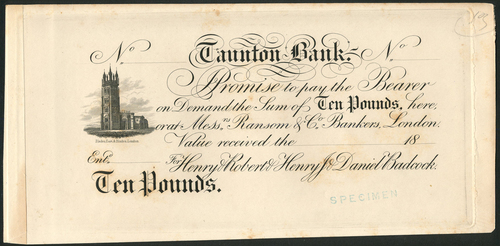 No Taunton Bank. No
I Promise to pay the Bearer
on Demand the Sum of Ten Pounds, here
or at Messrs Ransom & Co. Bankers, London.
Value received the 18
Entd.
For Henry & Robert & Henry J. & Daniel Badcock.
Ten Pounds.
SPECIMEN